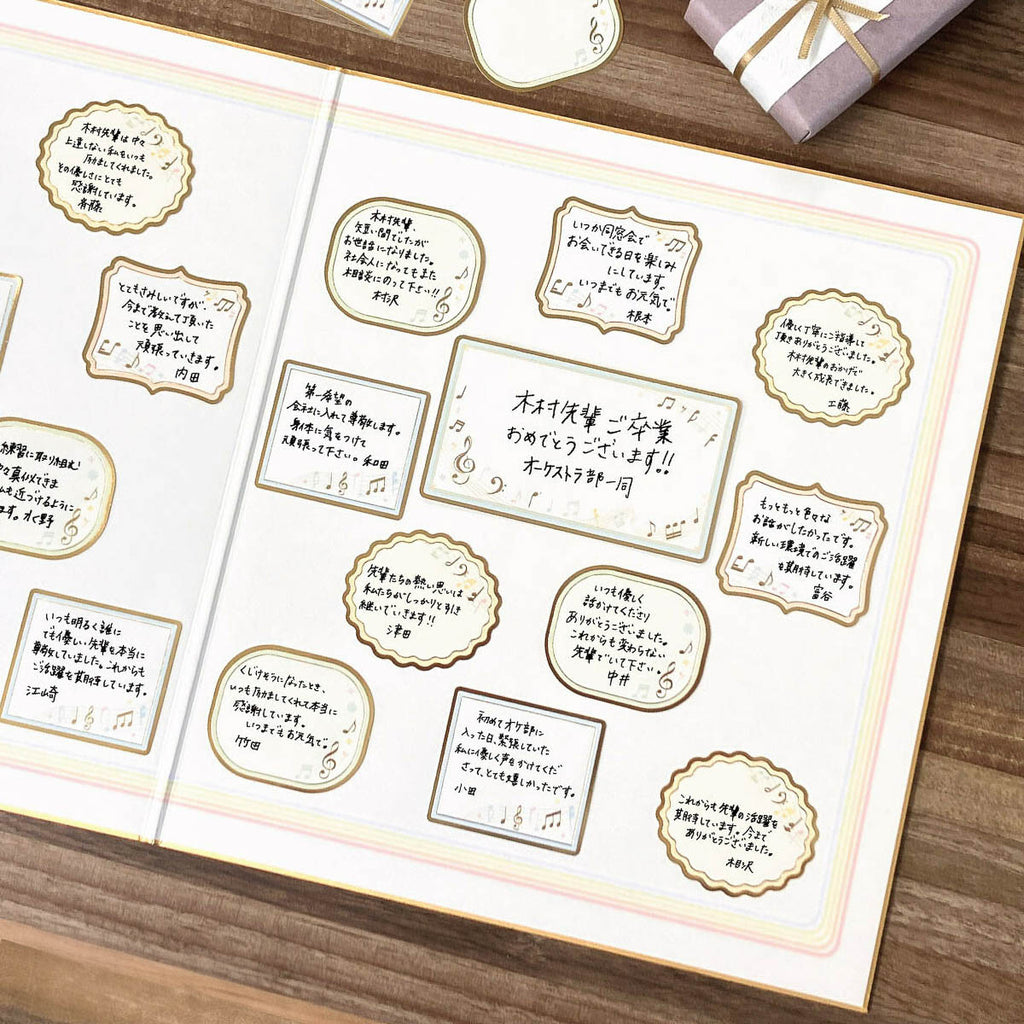 木村先輩は中々
上達しない私をいつも
励ましてくれました。
その優しさにとても
感謝しています。
斉藤
とてもさみしいですが、
今まで教えて頂いた
ことを思い出して
頑張っていきます。
内田
練習に取り組む
真似できま
も近づけるように
ます。水野
いつも明るく誰に
でも優しい先輩を本当に
尊敬していました。これからも
ご活躍を期待しています。
江崎
木村先輩、
短い間でしたが
お世話になりました。
社会人になってもまた
相談にのって下さい!!
村沢
いつか同窓会で
お会いできる日を楽しみ
にしています。
いつまでもお元気で。
根本
優しく丁寧にご指導して
頂きありがとうございました。
木村先輩のおかげで
大きく成長できました。
工藤
第一希望の
会社に入れて尊敬します。
身体に気をつけて
頑張って下さい。和田
木村先輩ご卒業
おめでとうございます!!
オーケストラ部一同
もっともっと色々な
お話がしたかったです。
新しい環境でのご活躍
を期待しています。
富谷
先輩たちの熱い思いは
私たちがしっかりと引き
継いでいきます!!
津田
いつも優しく
話かけてくださり
ありがとうございました。
これからも変わらない
先輩でいて下さい。
中井
くじけそうになったとき、
いつも励ましてくれて本当に
感謝しています。
いつまでもお元気で。
竹田
初めてオケ部に
入った日、緊張していた
私に優しく声をかけてくだ
さって、とても嬉しかったです。
小田
これからも先輩の活躍を
期待しています。今まで
ありがとうございました。
相沢